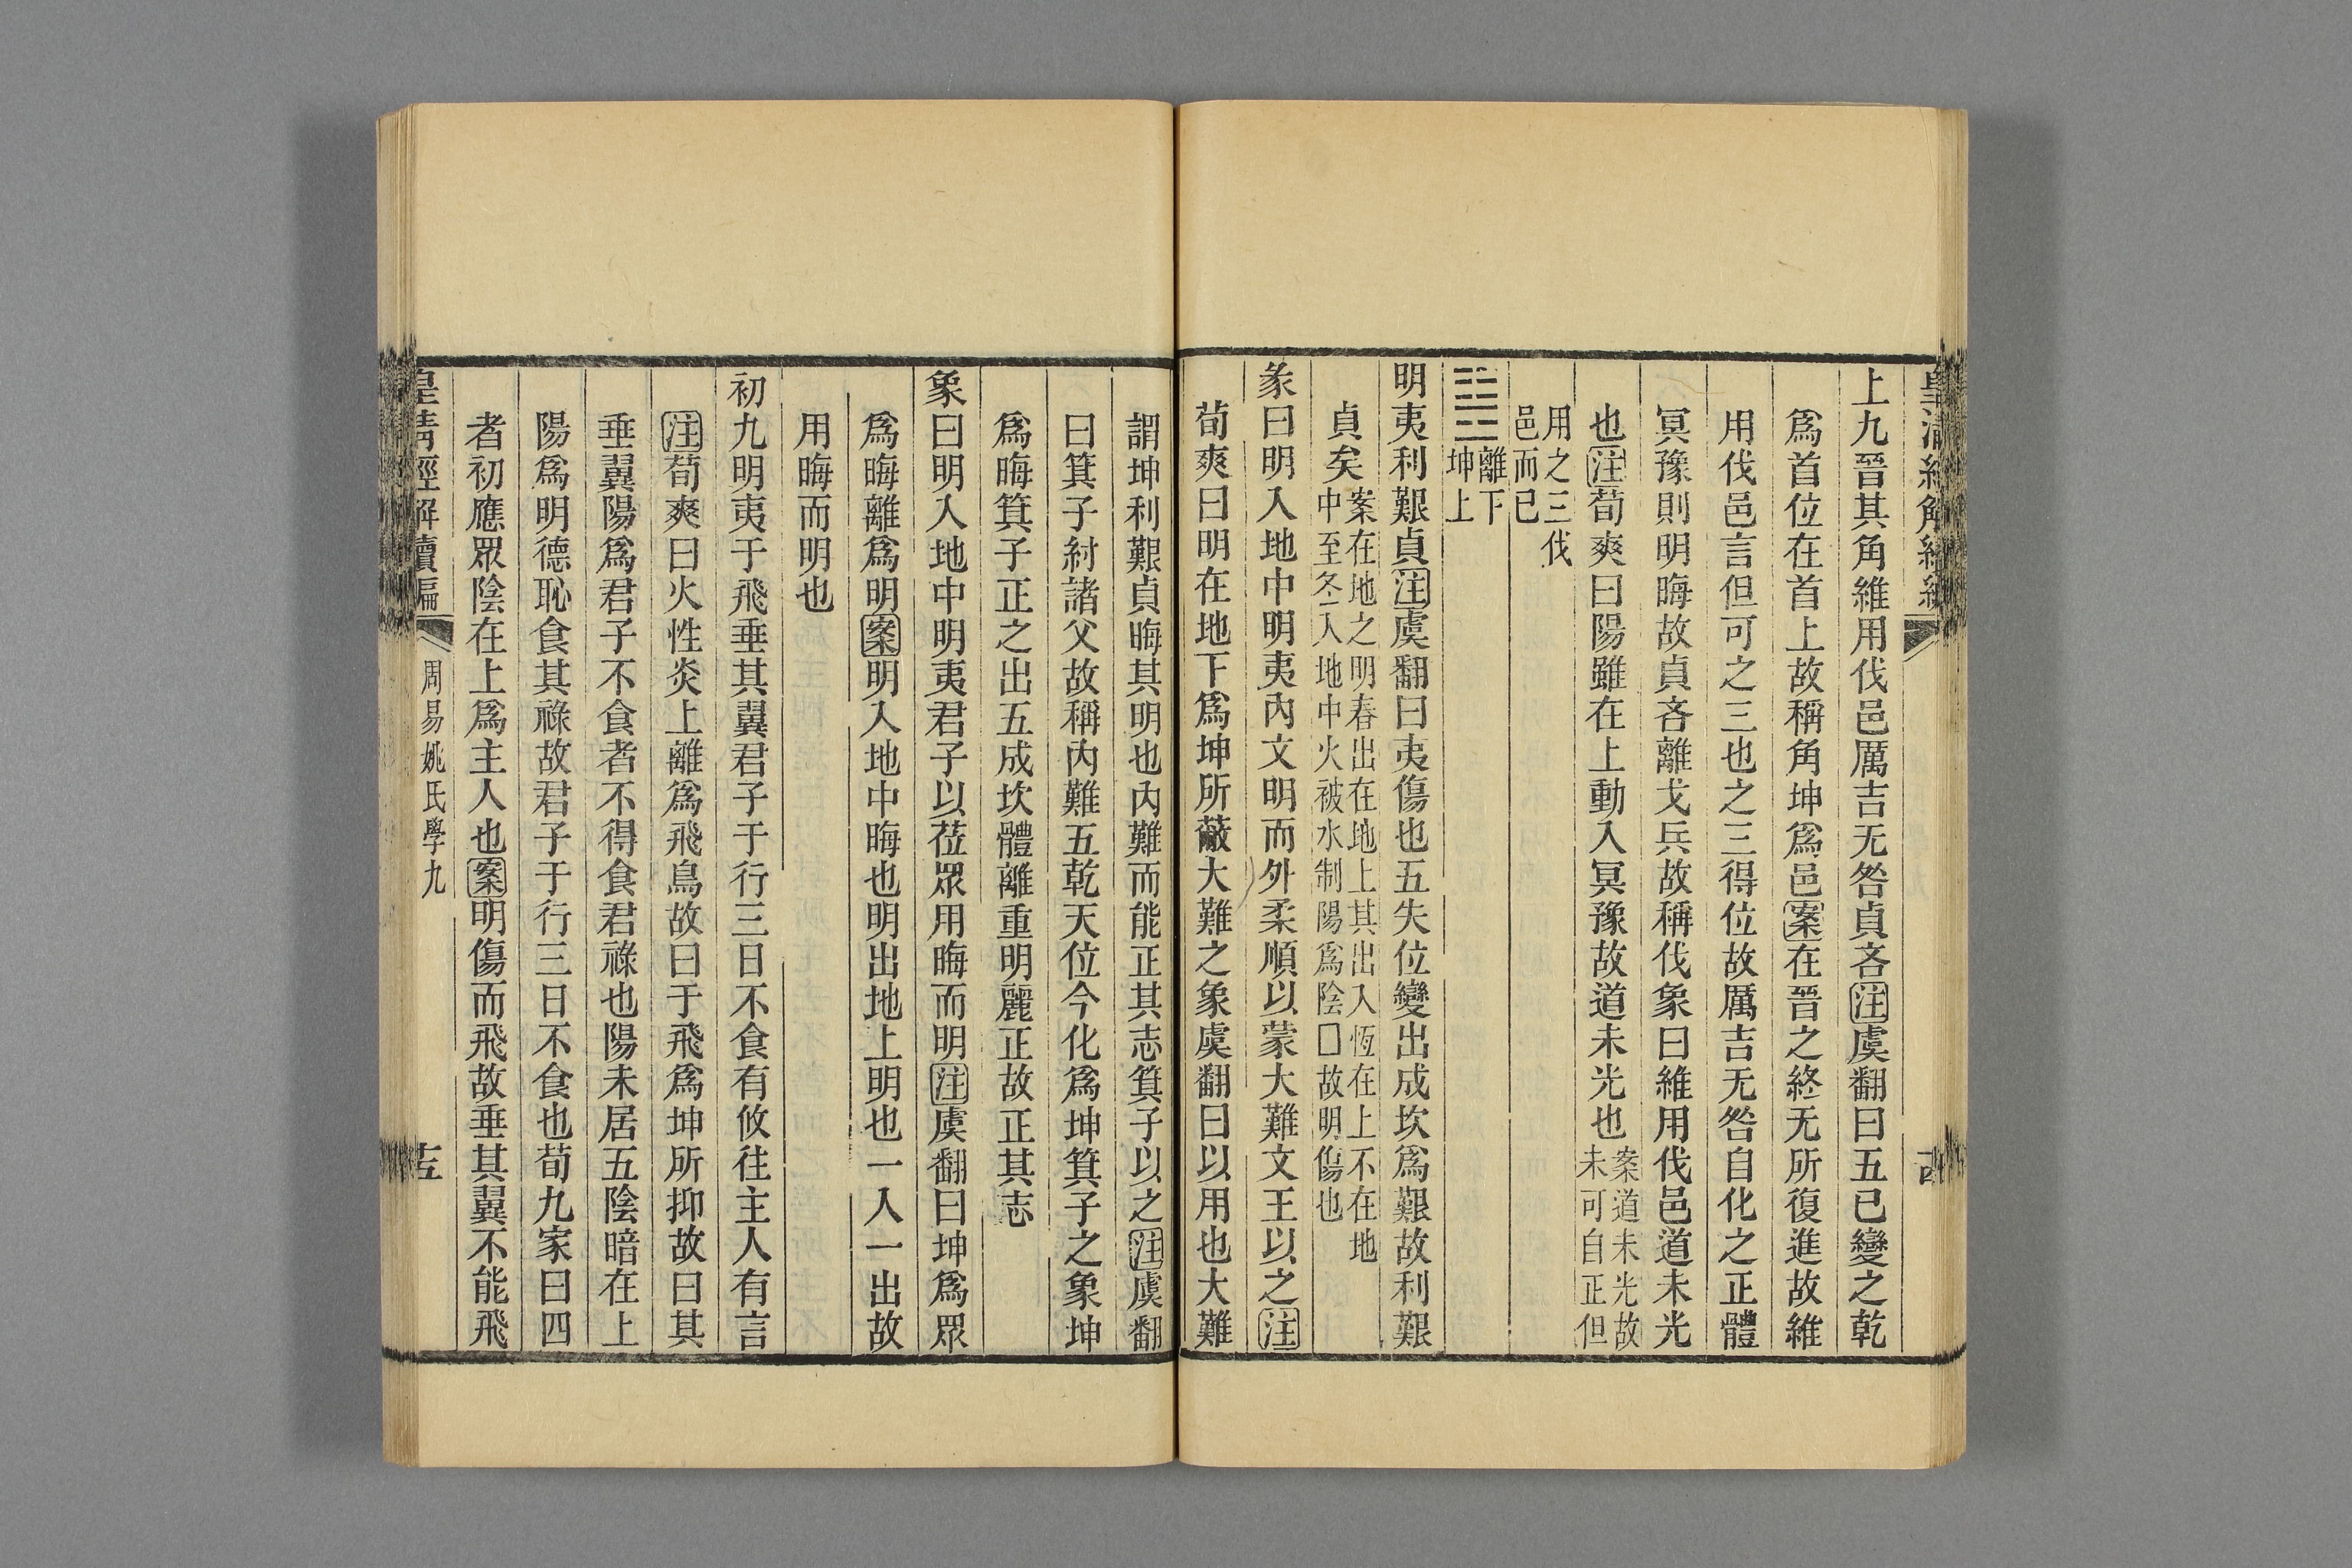 上九晉其角維用伐邑厲吉无咎貞吝注虞翻曰五已變之乾
爲首位在首上故稱角坤爲邑案在晉之終无所復進故維
用伐邑言但可之三也之三得位故厲吉无咎自化之正體
冥豫則明晦故貞吝離戈兵故稱伐象曰維用伐邑道未光
也注荀爽曰陽雖在上動入冥豫故道未光也案道未光故
未可自正但
用之三伐
邑而已
離下
坤上
明夷利艱貞注虞翻曰夷傷也五失位變出成坎爲艱故利艱
貞矣案在地之明春出在地上其出入恆在上不在地
中至冬入地中火被水制陽爲陰□故明傷也
彖曰明入地中明夷內文明而外柔順以蒙大難文王以之注
荀爽曰明在地下爲坤所蔽大難之象虞翻曰以用也大難
謂坤利艱貞晦其明也內難而能正其志箕子以之注虞翻
曰箕子紂諸父故稱內難五乾天位今化爲坤箕子之象坤
爲晦箕子正之出五成坎體離重明麗正故正其志
象曰明入地中明夷君子以莅眾用晦而明注虞翻曰坤爲眾
爲晦離爲明案明入地中晦也明出地上明也一入一出故
用晦而明也
初九明夷于飛垂其翼君子于行三日不食有攸往主人有言
注荀爽曰火性炎上離爲飛鳥故曰于飛爲坤所抑故曰其
垂翼陽爲君子不食者不得食君祿也陽未居五陰暗在上
陽爲明德恥食其祿故君子于行三日不食也荀九家曰四
者初應眾陰在上爲主人也案明傷而飛故垂其翼不能飛
皇清經解續編
周易姚氏學九